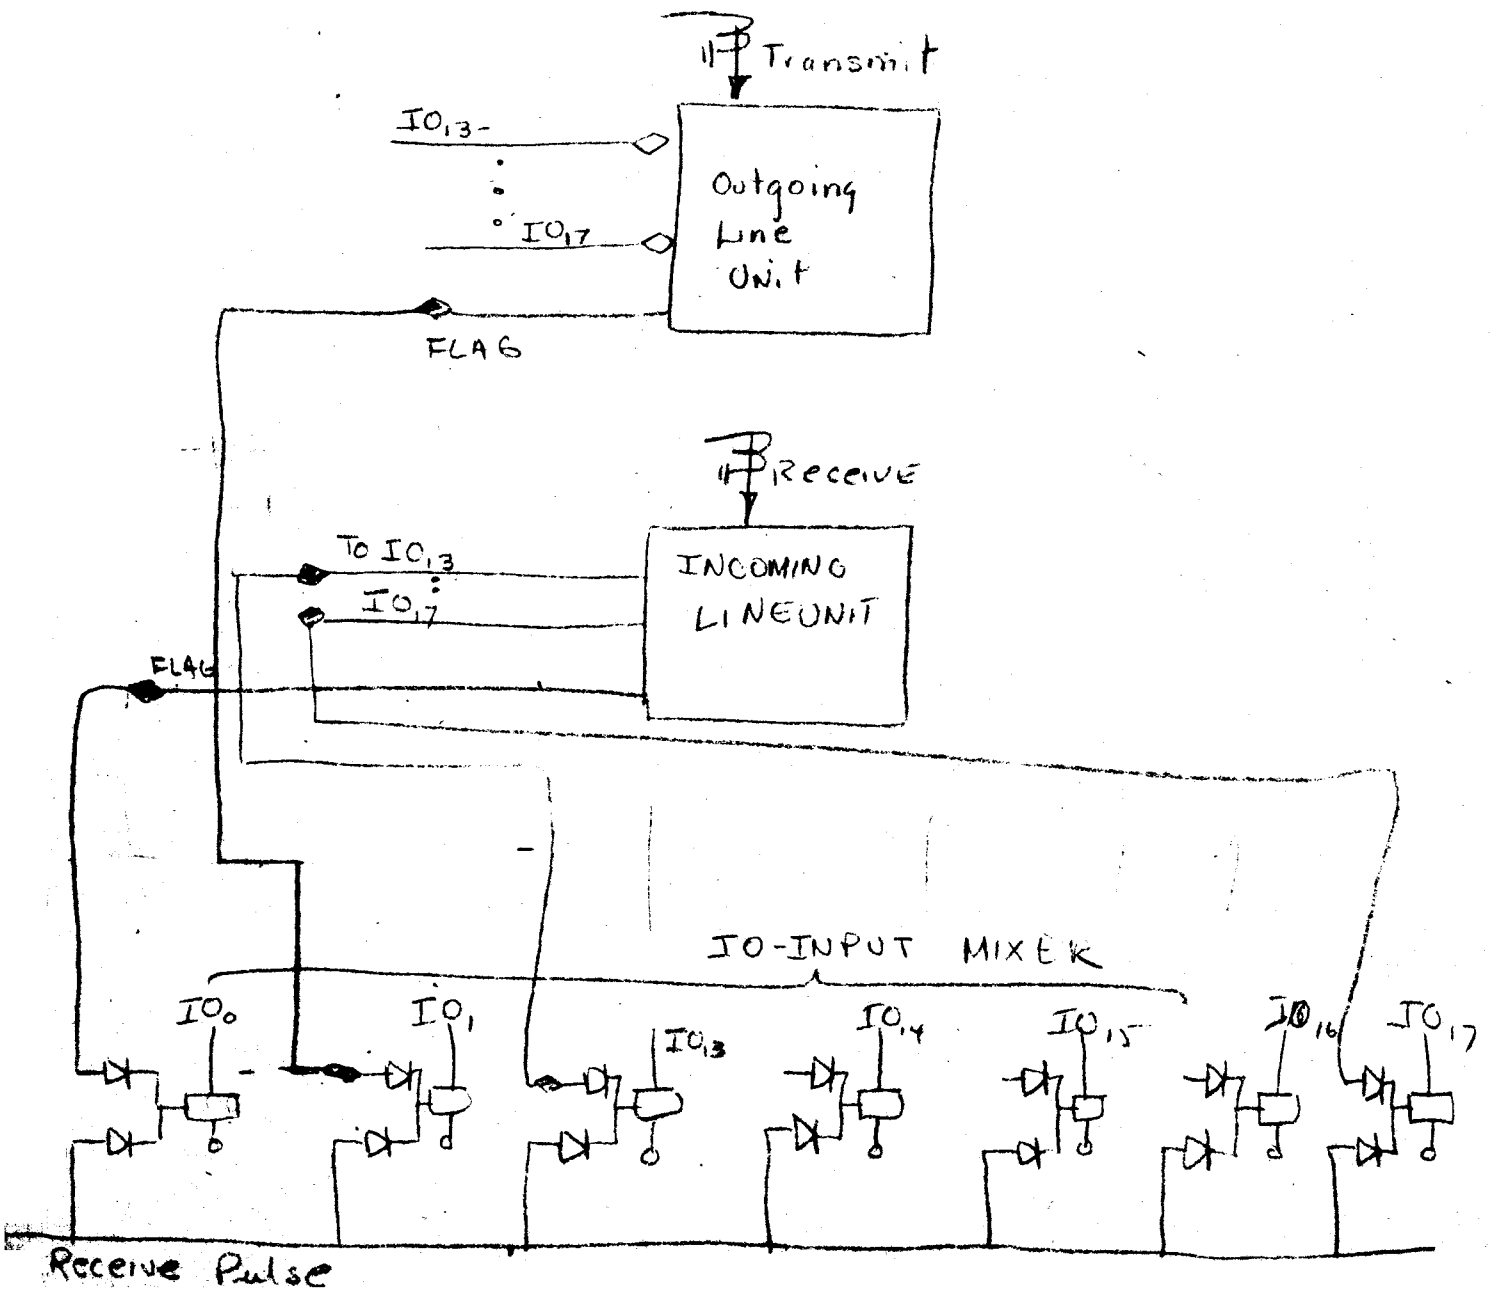 Transmit
IO,13-
Outgoing
Line
Unit
IO,17
FLAG
Receive
To IO,13
IO,17
INCOMING
LINE UNIT
FLAG
IO-INPUT MIXER
IO0
IO,1
IO,13
IO,14
IO,15
IO,16
IO,17
Receive Pulse